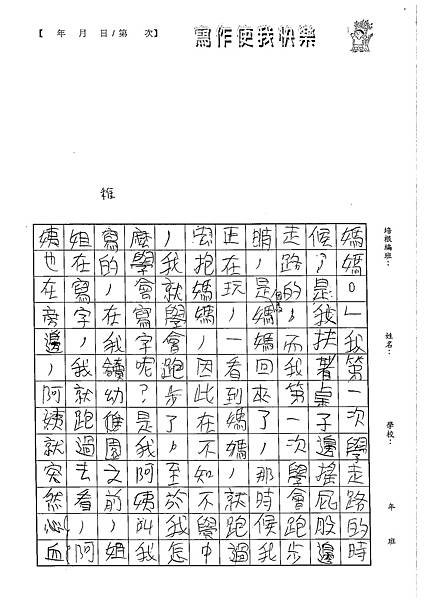 【 年 月 日/第 次】
寫作使我快樂
培根編班： 姓名： 學校： 年 班
媽媽。」我第一次學走路的時
候,是我扶著桌子邊搖屁股邊
走路的。而我第一次學會跑步
時,是媽媽回來了,那時候我
正在玩,一看到媽媽,就跑過
去抱媽媽,因此在不知不覺中
,我就學會跑步了。至於我怎
麼學會寫字呢?是我阿姨叫我
稚
寫的,在我讀幼稚園之前,姐
姐在寫字,我就跑過去看,阿
姨也在旁邊,阿姨就突然心血